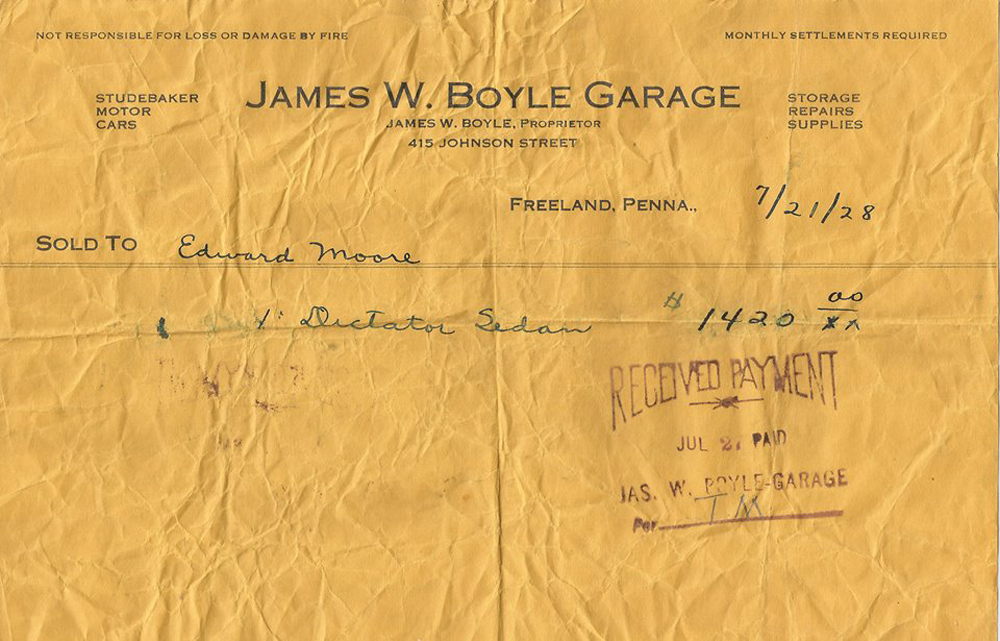 NOT RESPONSIBLE FOR LOSS OR DAMAGE BY FIRE
MONTHLY SETTLEMENTS REQUIRED
STUDEBAKER
MOTOR
CARS
JAMES W. BOYLE GARAGE
JAMES W. BOYLE, PROPRIETOR
415 JOHNSON STREET
STORAGE
REPAIRS
SUPPLIES
FREELAND, PENNA., 7/21/28
SOLD TO Edward Moore
Dictator Sedan $ 1420 00/xx
RECEIVED PAYMENT
JUL PAID
JAS. W. BOYLE-GARAGE
Per T M.